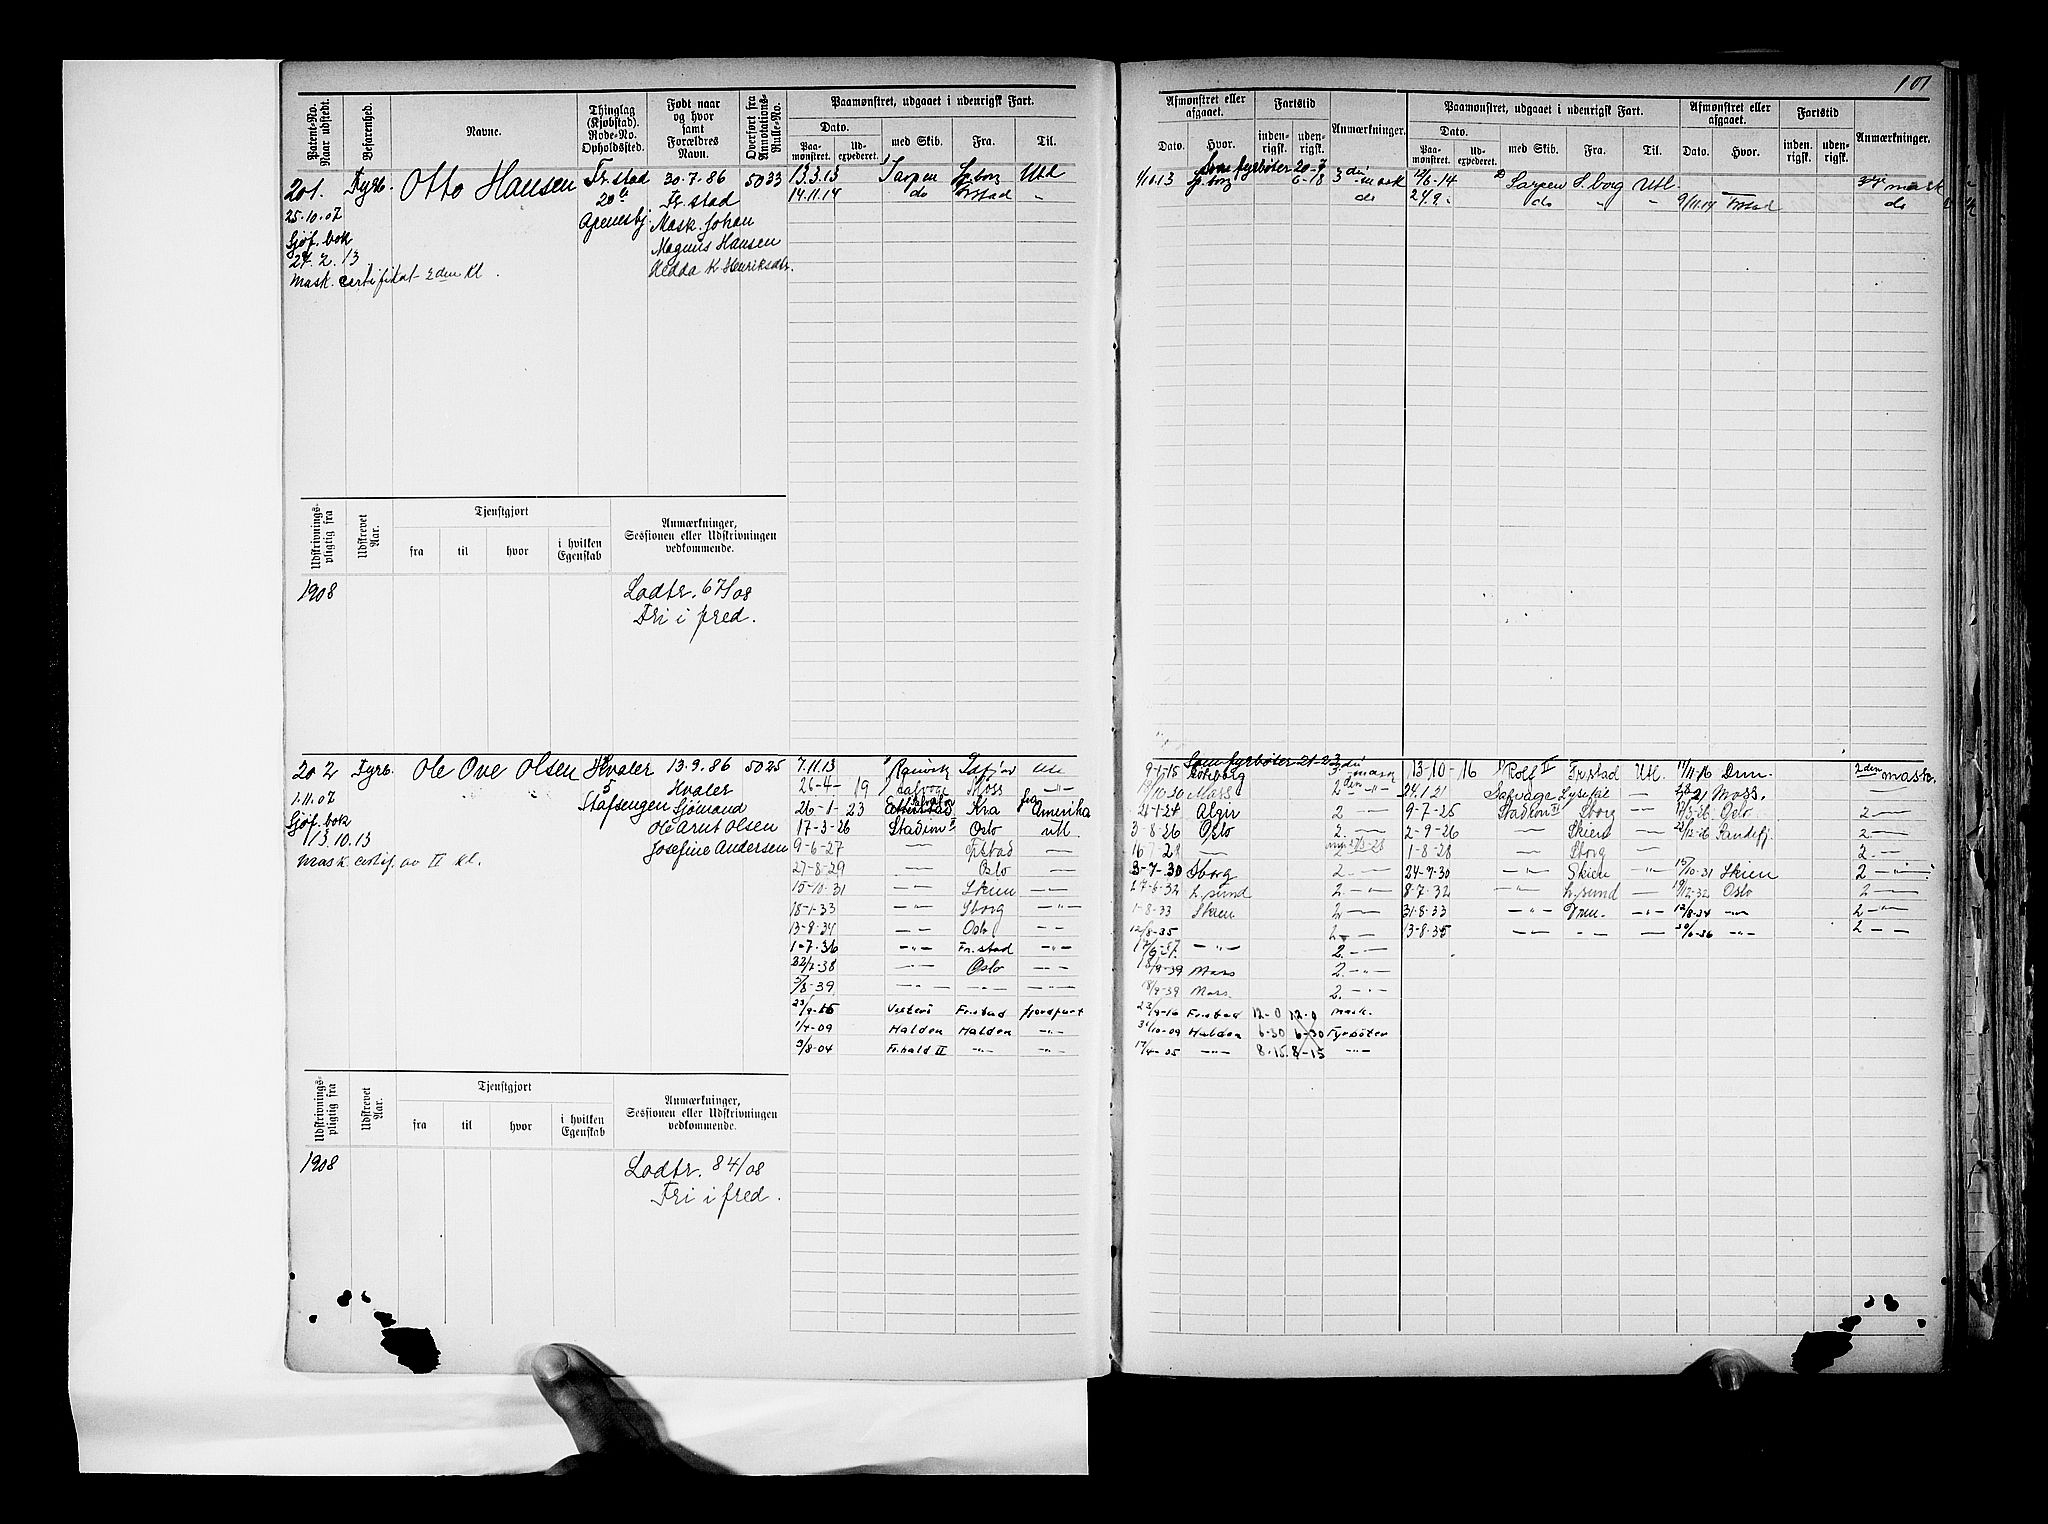 101
Patent-No. Naar udstedt.
Befarenhed.
Navne.
Thinglag (Kjøbstad). Rode-No. Opholdssted.
Født naar og hvor samt Forældres Navn.
Overført fra Annotations-Rulle-No.
Paamønstret, udgaaet i udenrigsk Fart.
Dato.
Paamønstret.
Udexpederet.
med Skib.
Fra:
Til.
Afmønstret eller afgaaet.
Dato.
Hvor.
Fartstid
indenrigsk.
udenrigsk.
Anmærkninger.
Paamønstret, udgaaet i udenrigsk Fart.
Dato.
Paamønstret.
Udexpederet.
med Skib.
Fra.
Til.
Afmønstret eller afgaaet.
Dato.
Hvor.
Fartstid
indenrigsk.
udenrigsk.
Anmærkninger.
201. Fyrb. Otto Hansen Fr.stad 30-7-86 5033 13.3.13 Sarpen S.borg Utl
25.10.07 20a Fr.stad 14.11.14 do Frstad "
Sjøf. bok Apenesbj Mask. Johan
27.2.13 Magnus Hansen
Mask. certifikat 2den kl. Hedda K Henriksdtr.
Som fyrbøter 20-7
1/10.13 S.borg 6-18 3di mask 12/6-14 Sarpen S.borg Utl. 3dje mask
do 24.9. do " " 9/11.14 Frstad do
Udskrivningspligtig fra
Udskrevet Aar.
Tjenstgjort
fra
til
hvor
i hvilken Egenskab
Anmærkninger, Sessionen eller Udskrivningen vedkommende.
1908 Lodtr. 67/08
Fri i fred.
202 Fyrb. Ole Ove Olsen Hvaler 13.9.86 5025
1.11.07 5 Hvaler
Sjøf. bok Stafsengen Sjømand
13.10.13 Ole Arnt Olsen
Mask. certif. av II kl. Josefine Andersen
7.11.13
26-4-19 Moss
26-1-23 Kra fra Amerika
17-3-26 Stadion II Oslo utl.
9-6-27 Frstad
27-8-29 Oslo
15-10-31 Skien
18-1-33 Sborg
13-8-34 Oslo
1-7-36 Fr.stad
22/2-38 Oslo
5/8-39
23/9-15 Fr.stad fjordfart
1/4-09 Halden Halden
3/8-04 Fr.hald II
Som fyrbøter 21-23
9-1-15 Gøteborg 3di mask 13-10-16 Rolf II Frstad Utl. 11/11-16 Drm. 2den mask.
Moss 2den 24.1.21 Salvage Lysekil Moss.
21-1-24 Algir 2 9-7-25 Stadion II Sborg Oslo 2
3-8-26 Oslo 2. 2-9-26 Skien Sandefj. 2
1-8-28 Sborg 2.
3-7-30 Sborg 2. 24-7-30 Skien 15/10-31 Skien 2
27-6-32 2 8-7-32 19/12-32 Oslo 2
1-8-33 Skien 2 31.8.33 Drm. 12/8-34 2
12/8-35 2 13-8-35 30/6-36 2
2.
18/9-39 Mars 2.
18/9-39 Mars. 2.
23/9-16 Fr.stad 12-0 12-0 Mask.
31/10-09 Halden 6-30 6-30 Fyrbøter
17/4-05 8-15 8-15
Udskrivningspligtig fra
Udskrevet Aar.
Tjenstgjort
fra
til
hvor
i hvilken Egenskab
Anmærkninger, Sessionen eller Udskrivningen vedkommende.
1908 Lodtr. 84/08
Fri i fred.